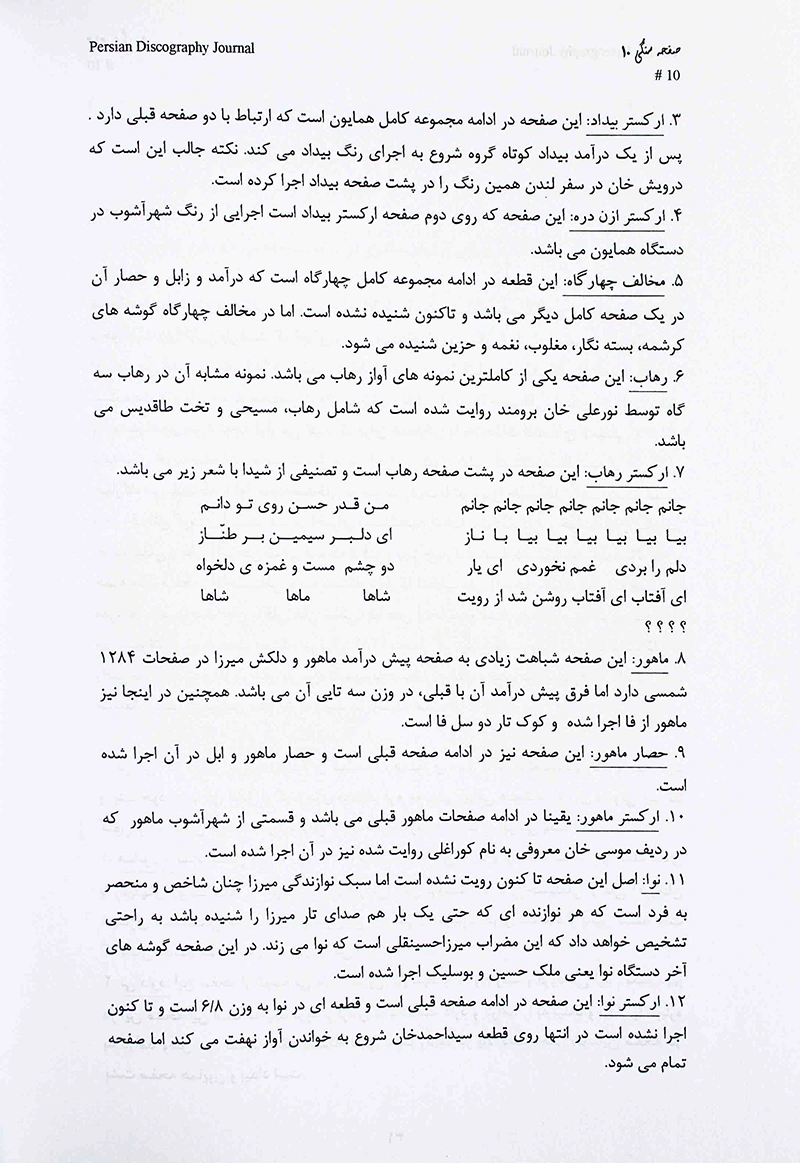 Persian Discography Journal
صفحه سنگی ۱۰
# 10
۳. ارکستر بیداد: این صفحه در ادامه مجموعه کامل همایون است که ارتباط با دو صفحه قبلی دارد .
پس از یک درآمد بیداد کوتاه گروه شروع به اجرای رنگ بیداد می کند. نکته جالب این است که
درویش خان در سفر لندن همین رنگ را در پشت صفحه بیداد اجرا کرده است.
۴. ارکستر ازن دره: این صفحه که روی دوم صفحه ارکستر بیداد است اجرایی از رنگ شهرآشوب در
دستگاه همایون می باشد.
۵. مخالف چهارگاه: این قطعه در ادامه مجموعه کامل چهارگاه است که درآمد و زابل و حصار آن
در یک صفحه کامل دیگر می باشد و تاکنون شنیده نشده است. اما در مخالف چهارگاه گوشه های
کرشمه، بسته نگار، مغلوب، نغمه و حزین شنیده می شود.
۶. رهاب: این صفحه یکی از کاملترین نمونه های آواز رهاب می باشد. نمونه مشابه آن در رهاب سه
گاه توسط نورعلی خان برومند روایت شده است که شامل رهاب، مسیحی و تخت طاقدیس می
باشد.
۷. ارکستر رهاب: این صفحه در پشت صفحه رهاب است و تصنیفی از شیدا با شعر زیر می باشد.
جانم جانم جانم جانم جانم جانم جانم من قدر حسن روی تو دانم
بیا بیا بیا بیا بیا بیا با ناز ای دلبر سیمین بر طنّاز
دلم را بردی غمم نخوردی ای یار دو چشم مست و غمزه ی دلخواه
ای آفتاب ای آفتاب روشن شد از رویت شاها ماها شاها
؟ ؟ ؟ ؟
۸. ماهور: این صفحه شباهت زیادی به صفحه پیش درآمد ماهور و دلکش میرزا در صفحات ۱۲۸۴
شمسی دارد اما فرق پیش درآمد آن با قبلی، در وزن سه تایی آن می باشد. همچنین در اینجا نیز
ماهور از فا اجرا شده و کوک تار دو سل فا است.
۹. حصار ماهور: این صفحه نیز در ادامه صفحه قبلی است و حصار ماهور و ابل در آن اجرا شده
است.
۱۰. ارکستر ماهور: یقینا در ادامه صفحات ماهور قبلی می باشد و قسمتی از شهرآشوب ماهور که
در ردیف موسی خان معروفی به نام کوراغلی روایت شده نیز در آن اجرا شده است.
۱۱. نوا: اصل این صفحه تا کنون رویت نشده است اما سبک نوازندگی میرزا چنان شاخص و منحصر
به فرد است که هر نوازنده ای که حتی یک بار هم صدای تار میرزا را شنیده باشد به راحتی
تشخیص خواهد داد که این مضراب میرزاحسینقلی است که نوا می زند. در این صفحه گوشه های
آخر دستگاه نوا یعنی ملک حسین و بوسلیک اجرا شده است.
۱۲. ارکستر نوا: این صفحه در ادامه صفحه قبلی است و قطعه ای در نوا به وزن ۶/۸ است و تا کنون
اجرا نشده است در انتها روی قطعه سیداحمدخان شروع به خواندن آواز نهفت می کند اما صفحه
تمام می شود.